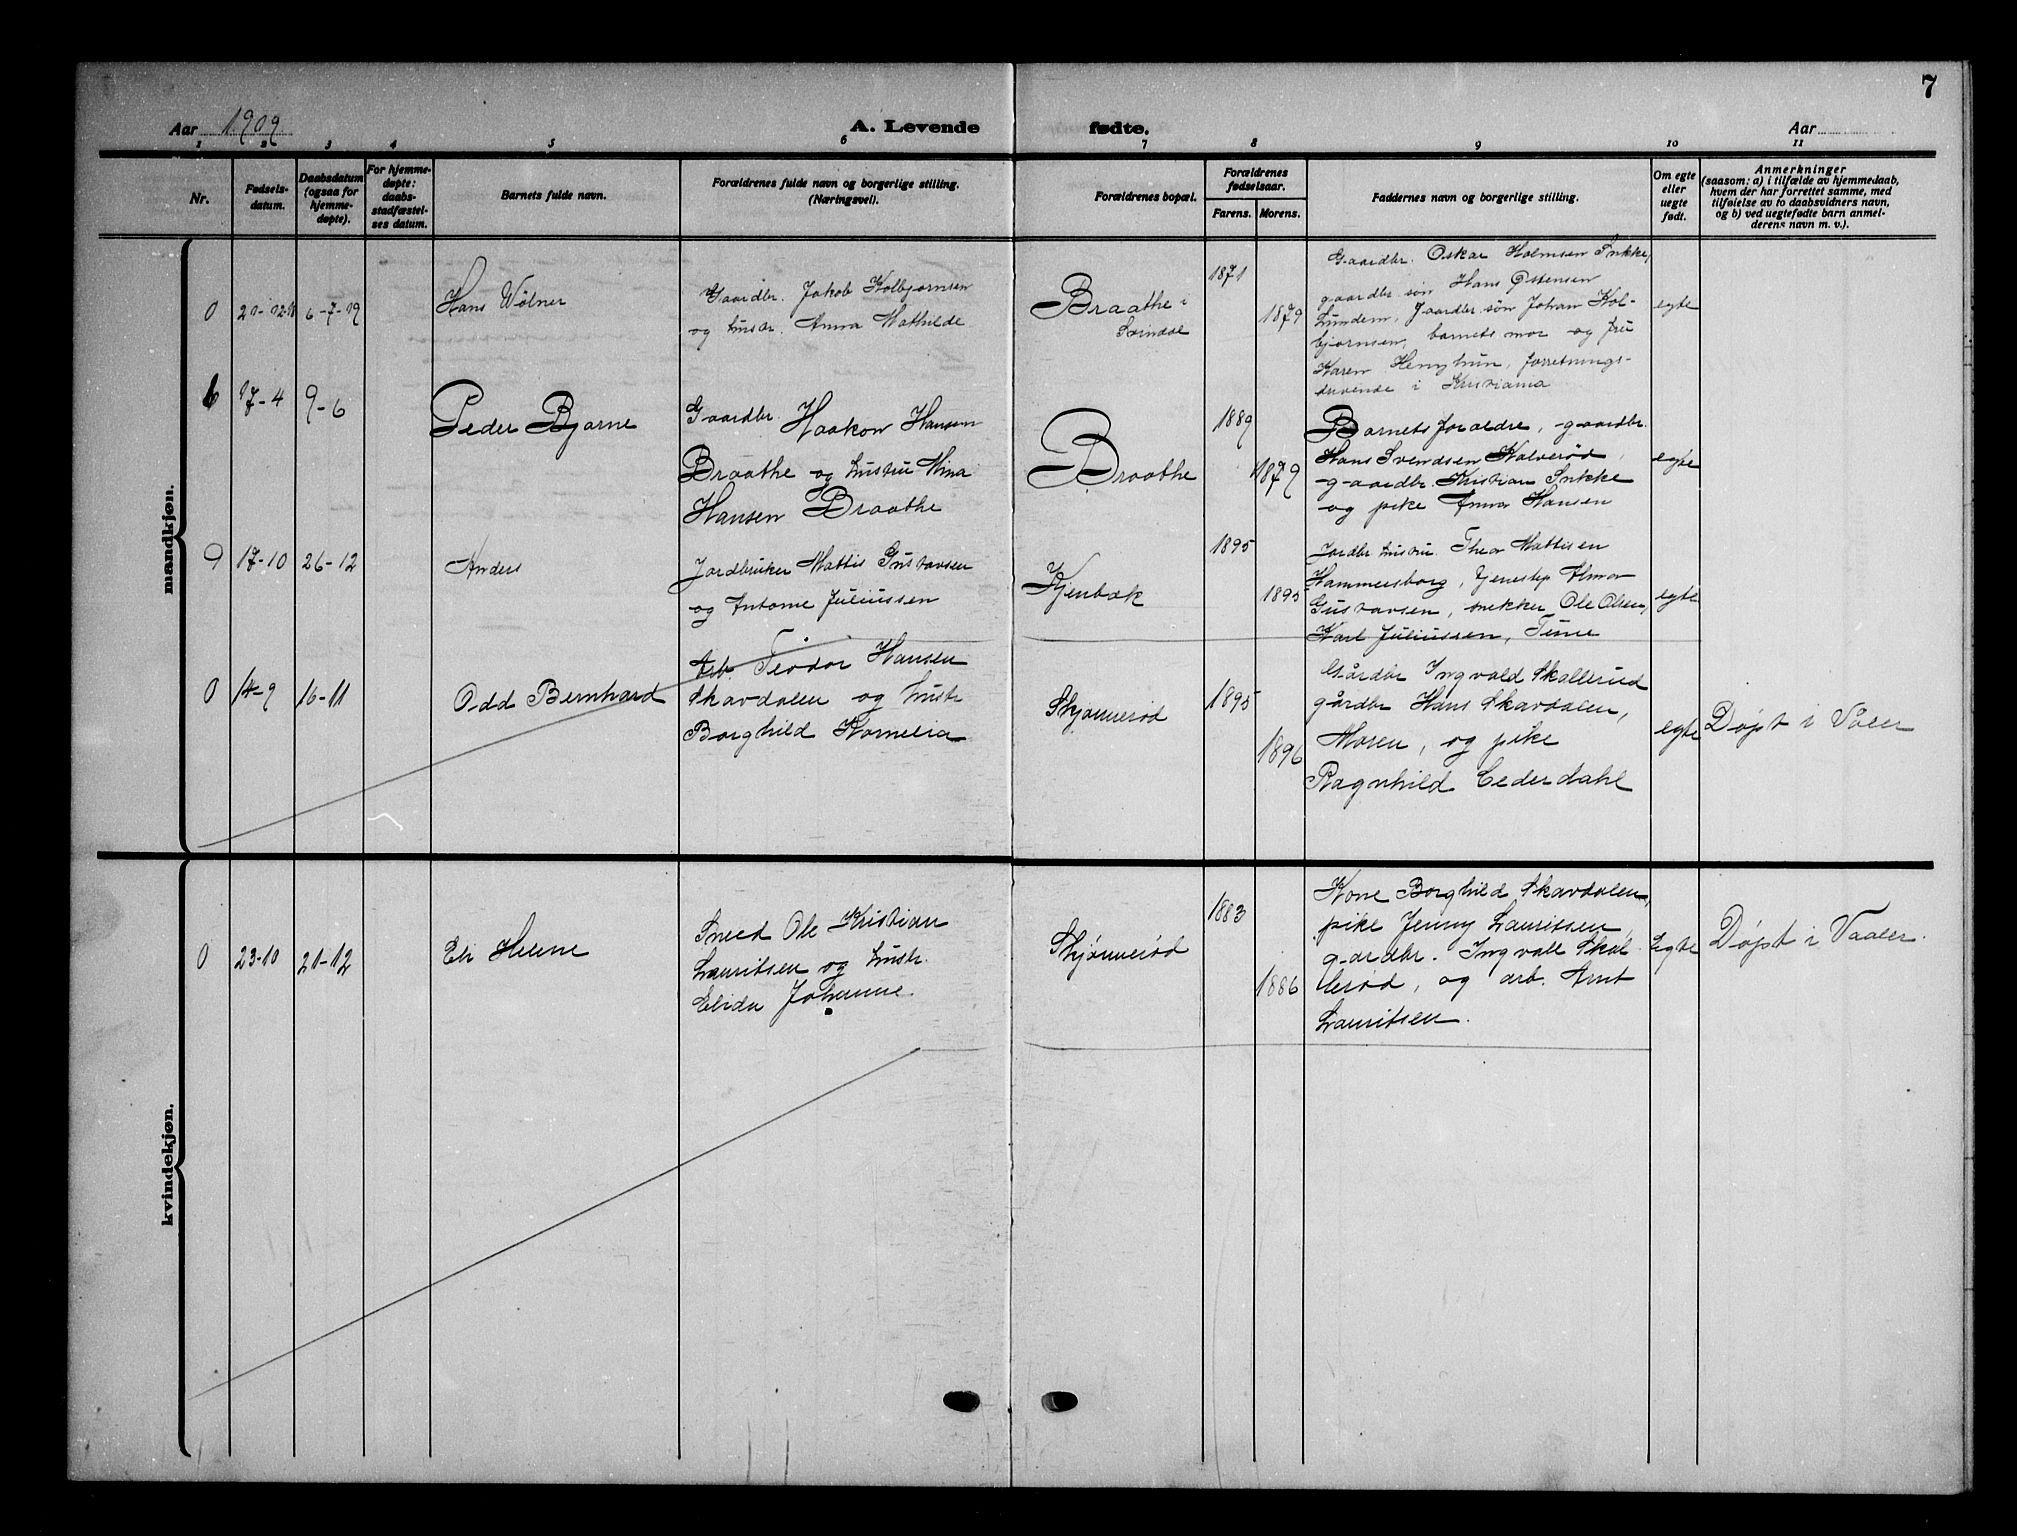 7
Aar 1909
A. Levende
fødte.
Aar
1 2 3 4 5 6 7 8 9 10 11
Nr.
Fødsels-
datum.
Daabsdatum
(ogsaa for
hjemme-
døpte).
For hjemme-
døpte:
daabs-
stadfæstel-
ses datum.
Barnets fulde navn.
Forældrenes fulde navn og borgerlige stilling.
(Næringsvei).
Forældrenes bopæl.
Forældrenes
fødselsaar.
Farens.
Morens.
Faddernes navn og borgerlige stilling.
Om egte
eller
uegte
født.
Anmerkninger
(saasom: a) i tilfælde av hjemmedaab,
hvem der har forrettet samme, med
tilføielse av to daabsvidners navn,
og b) ved uegtefødte barn anmel-
derens navn m. v.).
mandkjøn.
0 21-12-18 6-7-19
Hans Wølner
Gaardbr. Jakob Kolbjørnsen
og hustr. Anna Mathilde
Braathe i
Svindal
1871
1879
Gaardbr. Oskar Holmsen Snikke,
gaardbr. søn Hans Østensen
Lundem, Gaardbr. søn Johan Kol-
bjørnsen, barnets mor og fru
Karen, forretnings-
drivende i Kristiania
egte
6 17-4 9-6
Peder Bjarne
Gaardbr. Haakon Hansen
Braathe og hustru Mina
Hansen Braathe
Braathe
1889
1879
Barnets foraldre, gaardbr.
Hans Svendsen Kolverød,
gaardbr. Kristian Snikke
og pike Anna Hansen
egte
9 17-10 26-12
Anders
Jordbruker Mattis Gustavsen
og Antonie Juliussen
Kjenbæk
1895
1895
Jordbr hustru. Thea Mattisen
Hammersborg, tjenestep Alma
Gustavsen, snekker Ole Olsen,
Karl Juliussen, Tune
egte
0 14-9 16-11
Odd Bernhard
Arb. Teodor Hansen
Skavdalen og hustr
Borghild Kornelia
Skjønnerød
1895
1896
Gårdbr Ingvald Skallerud
gårdbr Hans Skavdalen,
Moren, og pike
Ragnhild Cederdahl
egte
Døpt i Våler
kvindekjøn.
0 23-10 21-12
Eli Helene
Smed Ole Kristian
Lauritsen og hustr.
Elida Johanne.
Skjønnerød
1883
1886
Kone Borghild Skavdalen,
pike Jenny Lauritsen,
gardbr. Ingvall Skal-
lerød, og arb. Arnt
Lauritsen.
Egte
Døpt i Vaaler.